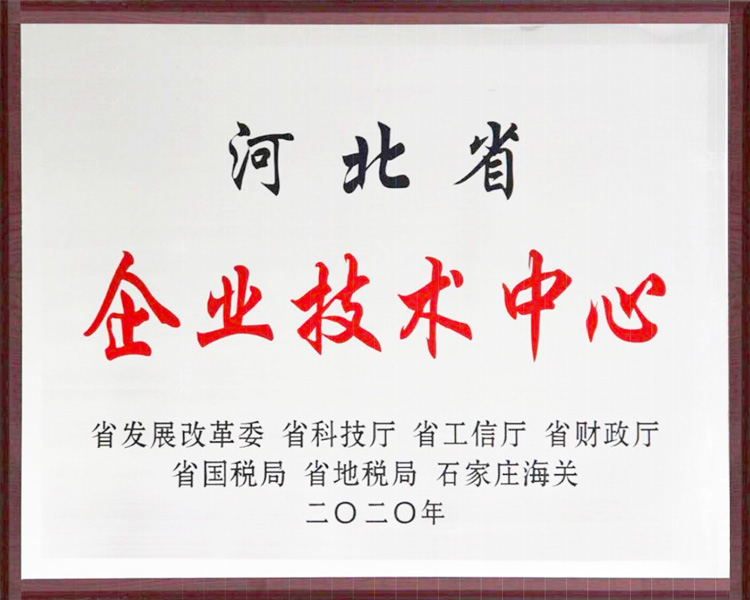 河北省
企业技术中心
省发展改革委 省科技厅 省工信厅 省财政厅
省国税局 省地税局 石家庄海关
二〇二〇年